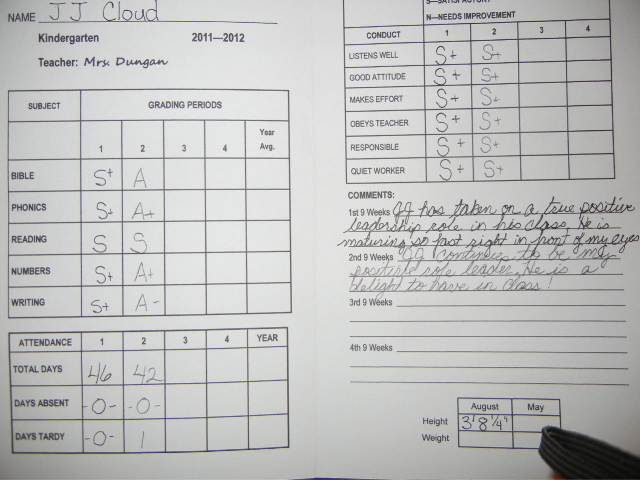 NAME JJ Cloud
Kindergarten 2011—2012
Teacher: Mrs. Dungan
SUBJECT GRADING PERIODS
1 2 3 4 Year Avg.
BIBLE S+ A
PHONICS S+ A+
READING S S
NUMBERS S+ A+
WRITING S+ A-
ATTENDANCE 1 2 3 4 YEAR
TOTAL DAYS 46 42
DAYS ABSENT -0- -0-
DAYS TARDY -0- 1
S—SATISFACTORY
N—NEEDS IMPROVEMENT
CONDUCT 1 2 3 4
LISTENS WELL S+ S+
GOOD ATTITUDE S+ S+
MAKES EFFORT S+ S+
OBEYS TEACHER S+ S+
RESPONSIBLE S+ S+
QUIET WORKER S+ S+
COMMENTS:
1st 9 Weeks JJ has taken on a true positive
leadership role in his class. He is
maturing so fast right in front of my eyes
2nd 9 Weeks JJ continues to be my
positive role leader. He is a
delight to have in class!
3rd 9 Weeks
4th 9 Weeks
August May
Height 3'8 1/4"
Weight